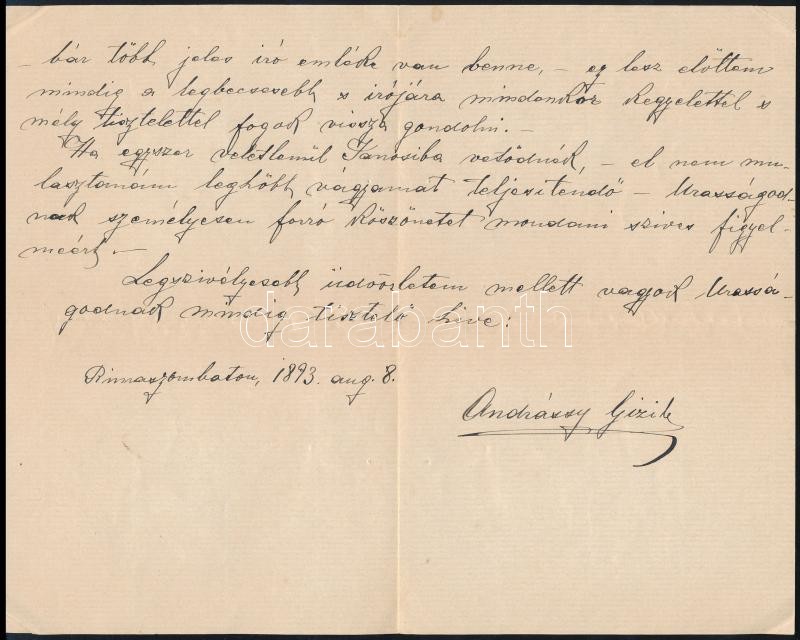 – bár több jeles iró emléke van benne, – ez lesz előttem
mindig a legbecsesebb s irójára mindenkor kegyelettel s
mély tisztelettel fogok vissza gondolni. –
Ha egyszer véletlenül Jánosiba vetődnék, – el nem mu-
lasztanám leghőbb vágyamat teljesitendő – Uraságod-
nak személyesen forró köszönetet mondani szives figyel-
meért. –
Legszivélyesebb üdvözletem mellett vagyok Urasá-
godnak mindig tisztelő hive:
Rimaszombaton, 1893. aug. 8.
Andrássy Gizik
darabanth